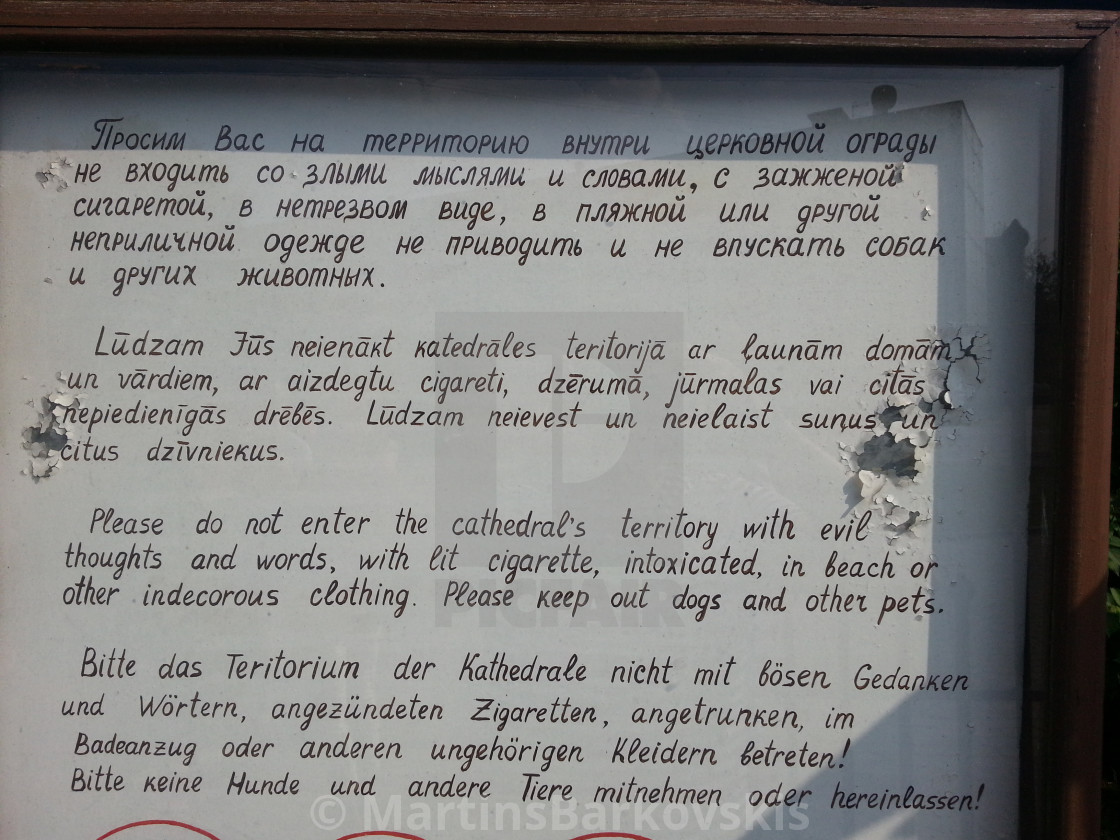 Просим Вас на территорию внутри церковной ограды
не входить со злыми мыслями и словами, с зажженой
сигаретой, в нетрезвом виде, в пляжной или другой
неприличной одежде не приводить и не впускать собак
и других животных.
Lūdzam Jūs neienākt katedrāles teritorijā ar ļaunām domām
un vārdiem, ar aizdegtu cigareti, dzērumā, jūrmalas vai citās
nepiedienīgās drēbēs. Lūdzam neievest un neielaist suņus un
citus dzīvniekus.
Please do not enter the cathedral's territory with evil
thoughts and words, with lit cigarette, intoxicated, in beach or
other indecorous clothing. Please keep out dogs and other pets.
Bitte das Teritorium der Kathedrale nicht mit bösen Gedanken
und Wörtern, angezündeten Zigaretten, angetrunken, im
Badeanzug oder anderen ungehörigen Kleidern betreten!
Bitte keine Hunde und andere Tiere mitnehmen oder hereinlassen!
PICFAIR
© MartinsBarkovskis